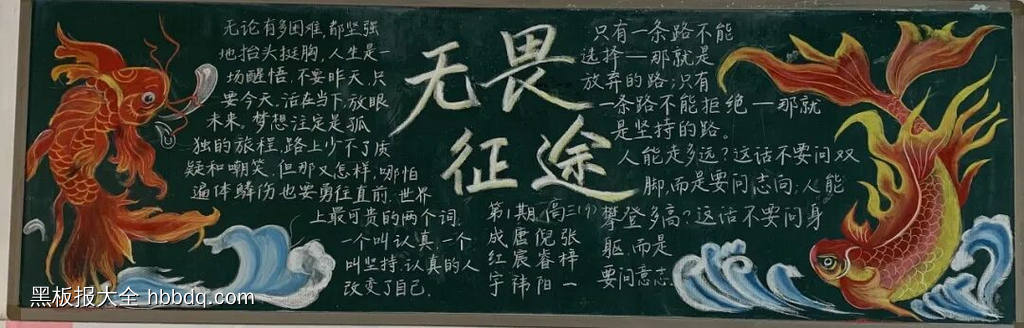 无论有多困难,都坚强
地抬头挺胸,人生是一
场醒悟,不要昨天,只
要今天,活在当下,放眼
未来,梦想注定是孤
独的旅程,路上少不了质
疑和嘲笑,但那又怎样,哪怕
遍体鳞伤也要勇往直前.世界
上最可贵的两个词.
一个叫认真,一个
叫坚持,认真的人
改变了自己.
无畏
征途
第1期 高三(9)
成唐倪张
红宸睿梓
宇祎阳一
只有一条路不能
选择——那就是
放弃的路;只有
一条路不能拒绝—那就
是坚持的路。
人能走多远?这话不要问双
脚,而是要问志向;人能
攀登多高?这话不要问身
躯,而是
要问意志.
黑板报大全 hbbdq.com